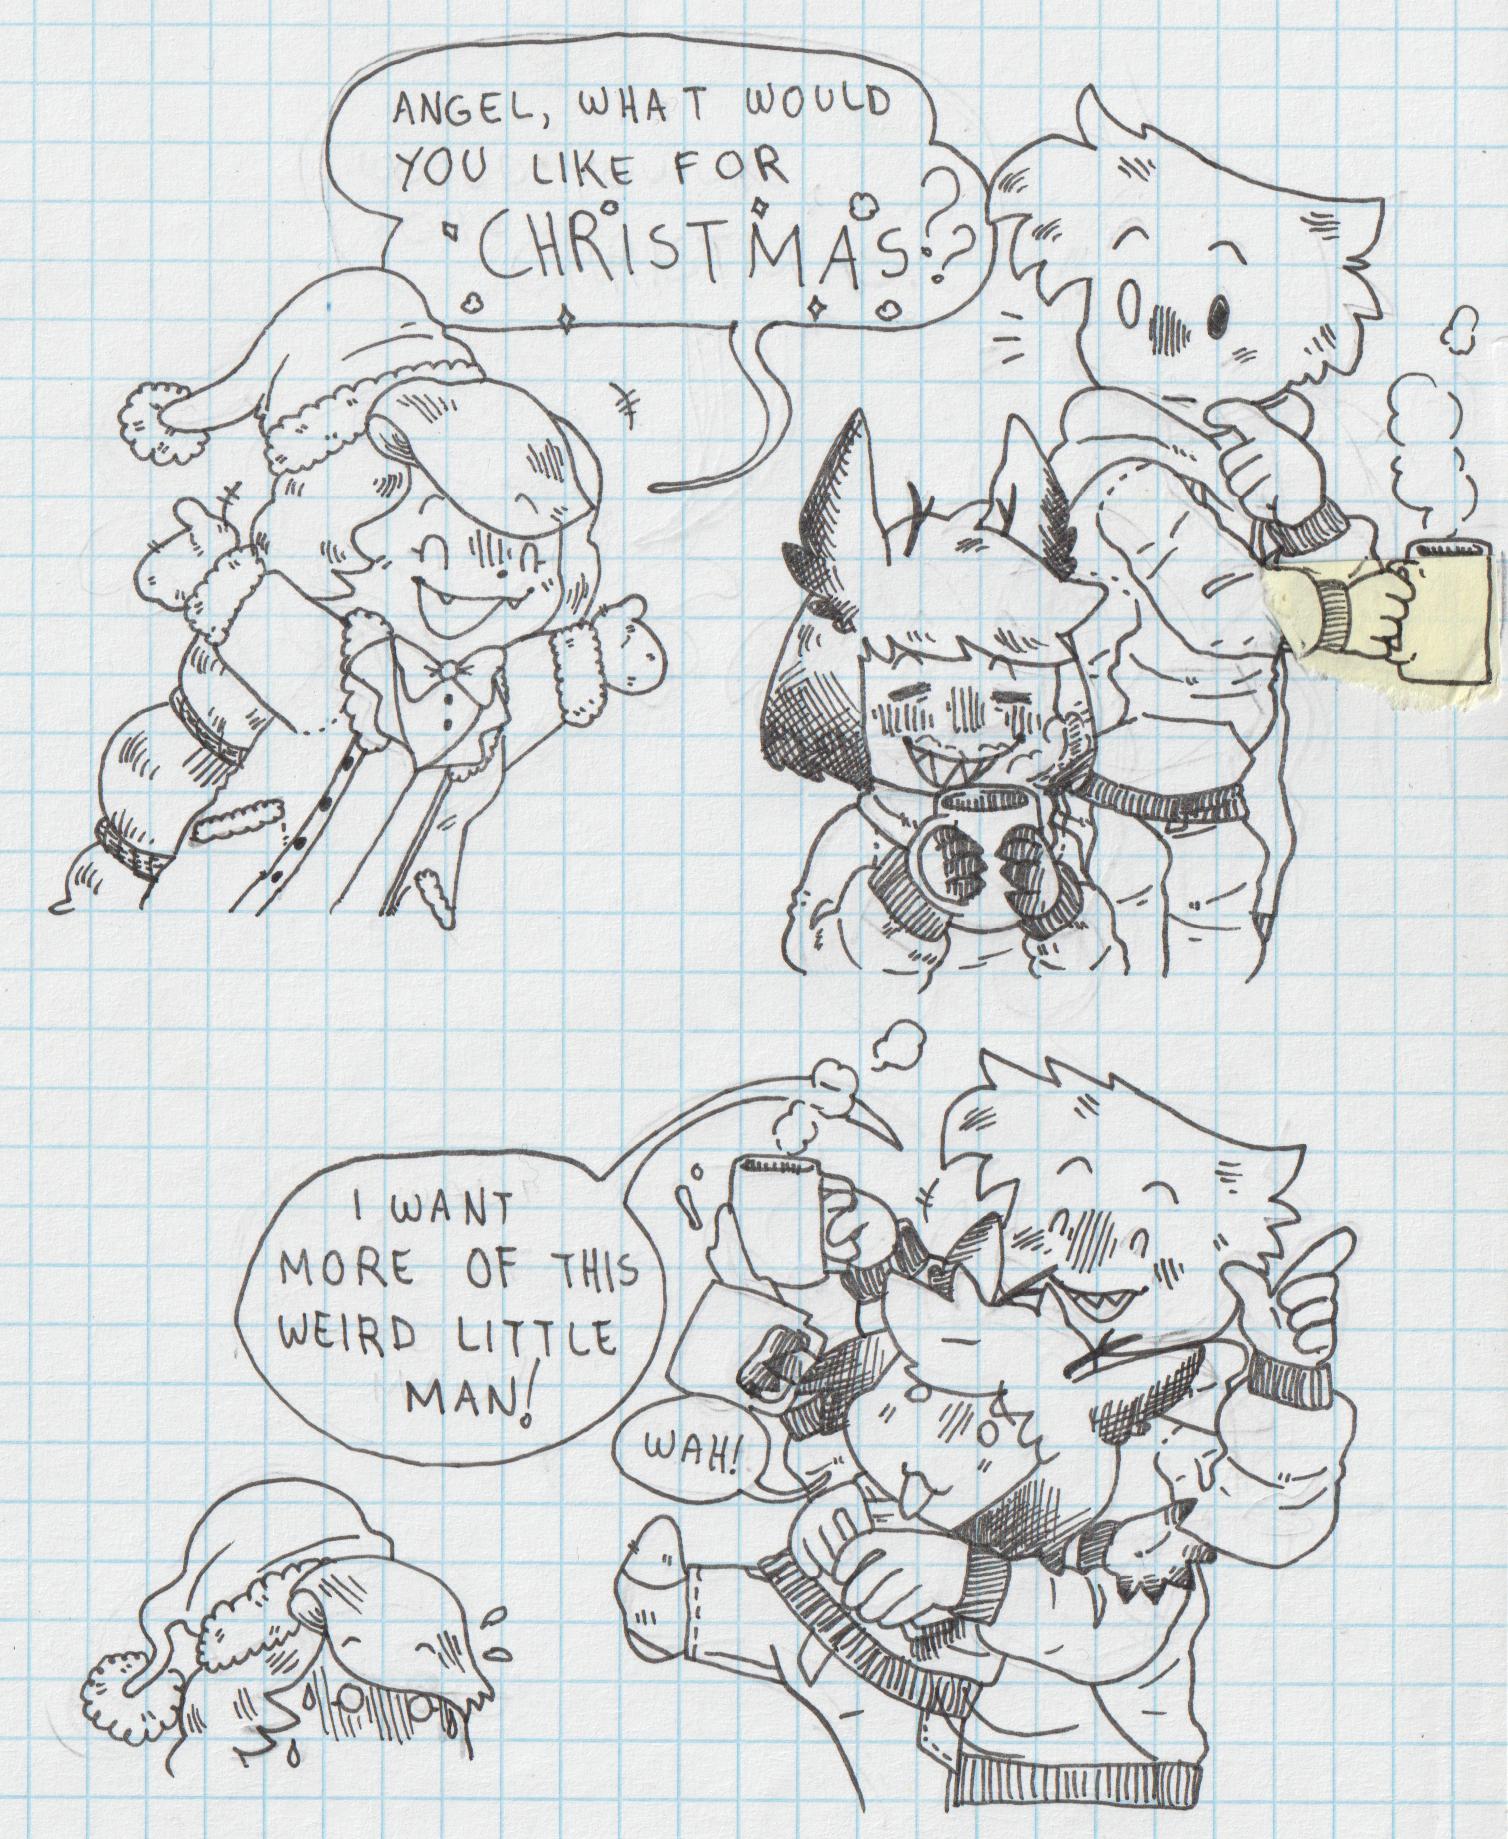 ANGEL, WHAT WOULD
YOU LIKE FOR
CHRISTMAS??
I WANT
MORE OF THIS
WEIRD LITTLE
MAN!
WAH!